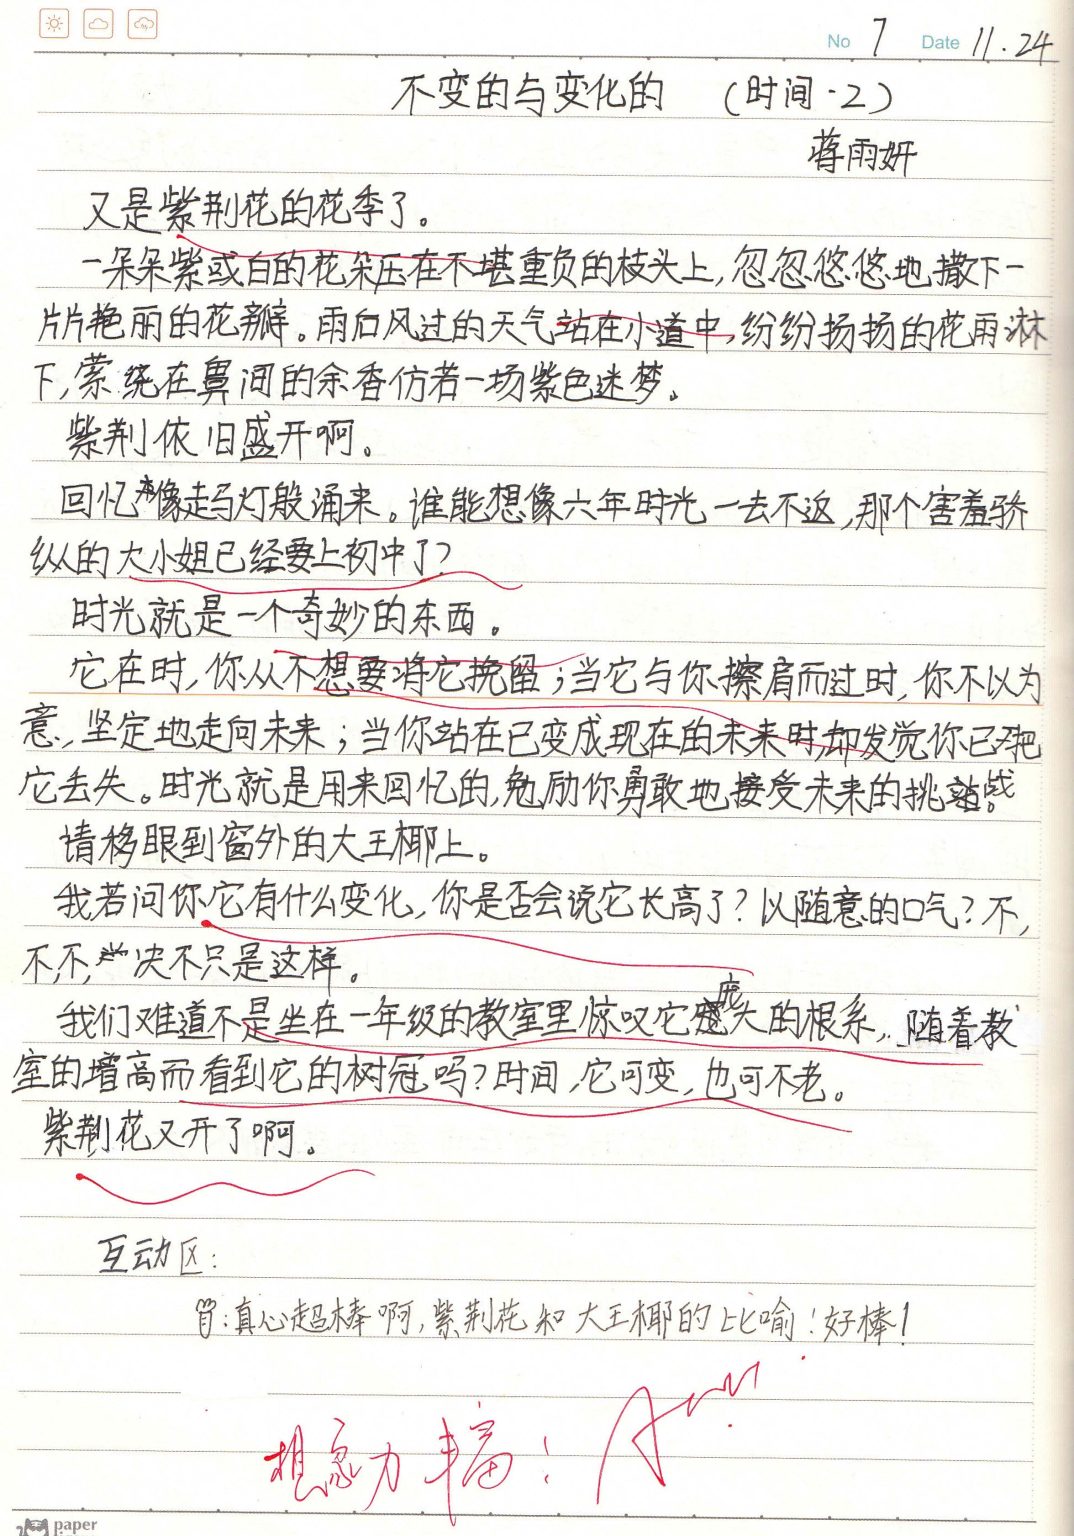 No 7 Date 11.24
不变的与变化的 (时间·2)
蒋雨妍
又是紫荆花的花季了。
一朵朵紫或白的花朵压在不堪重负的枝头上,忽忽悠悠地撒下一
片片艳丽的花瓣。雨后风过的天气站在小道中,纷纷扬扬的花雨淋
下,萦绕在鼻间的余香仿若一场紫色迷梦。
紫荆依旧盛开啊。
回忆像走马灯般涌来。谁能想像六年时光一去不返,那个害羞骄
纵的大小姐已经要上初中了?
时光就是一个奇妙的东西。
它在时,你从不想要将它挽留;当它与你擦肩而过时,你不以为
意,坚定地走向未来;当你站在已变成现在的未来时,却发觉你已把
它丢失。时光就是用来回忆的,勉励你勇敢地接受未来的挑战。
请移眼到窗外的大王椰上。
我若问你它有什么变化,你是否会说它长高了?以随意的口气?不,
不,不,决不只是这样。
我们难道不是坐在一年级的教室里惊叹它庞大的根系,随着教
室的增高而看到它的树冠吗?时间,它可变,也可不老。
紫荆花又开了啊。
互动区:
:真心超棒啊,紫荆花和大王椰的比喻!好棒!
想象力丰富!A
paper